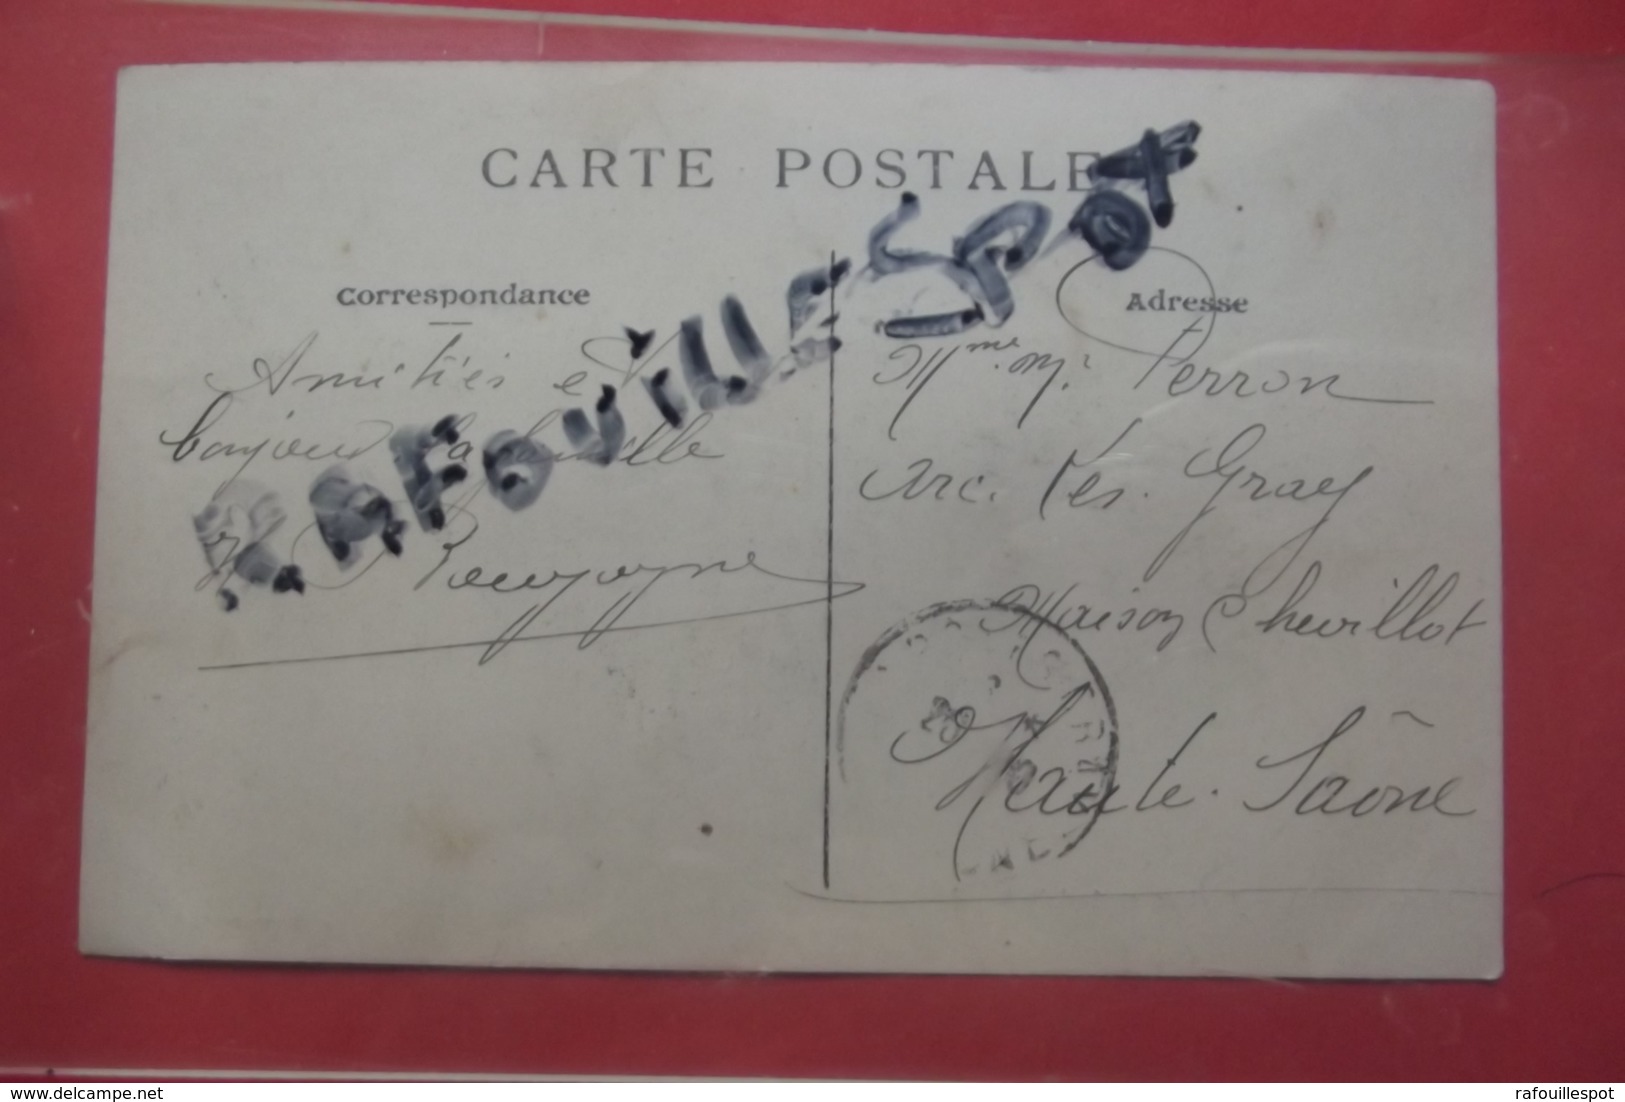 CARTE POSTALE
RAFOUILLESPOT
Correspondance
Amitiés et
bonjour la famille
Bourgogne
Adresse
Mme M. Perron
Arc. les. Gray
Maison Chevillot
Haute. Saône
www.delcampe.net
rafouillespot